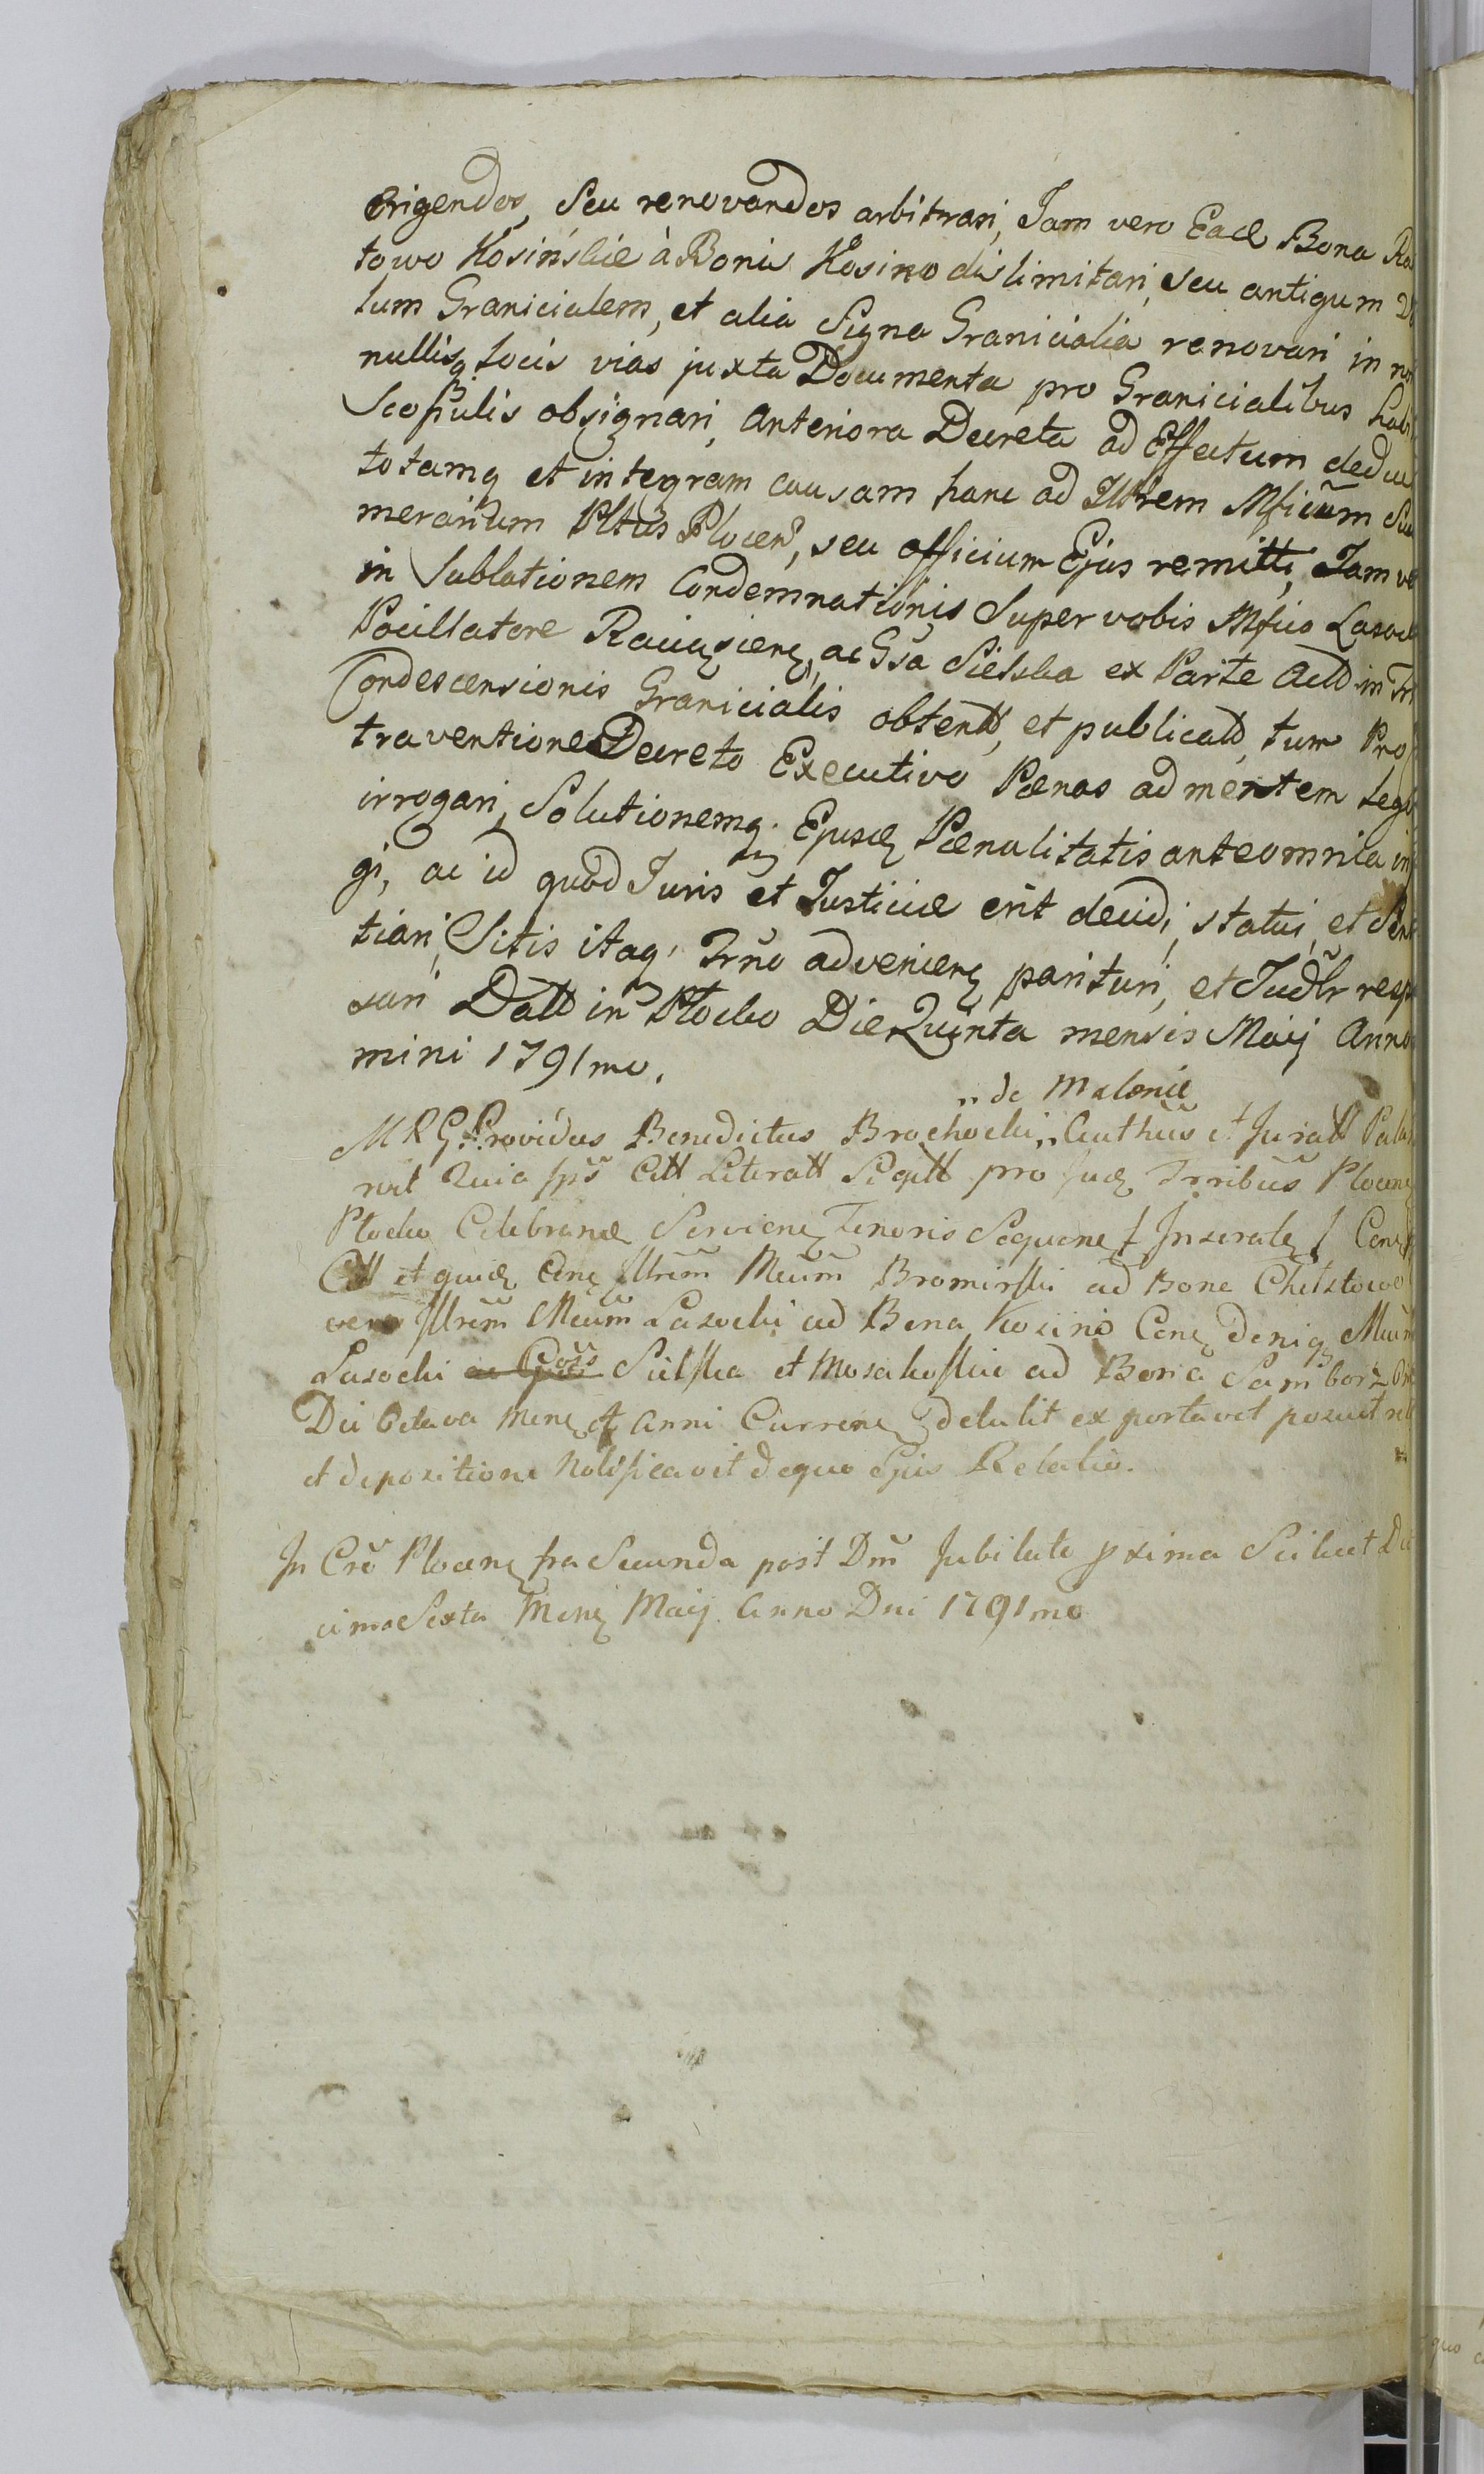 erigendos, seu renovandos arbitrari, Jam vero Eadẽ Bona
towo Kosińskie à Bonis Kosino dislimitari, seu antiqum
lum Granicialem, et alia Signa Granicialia renovari in
nullisq locis vias juxta Documenta pro Granicialibus
Scopulis obsignari, Anteriora Decreta ad Effectum
totamq et integram causam hanc ad Illtrem Mficum
merarium Pltus Plocen, seu officium Ejus remitti, Jam
in Sublationem Condemnationis Super vobis Mfico
Pocillatore Raciązień, ac Gsa Sielska ex Parte Actt in
Condescensionis Granicialis obtentt, et publicatt, tum
traventione Decreto Executivo Pænas ad mentem
irrogari, Solutionemq Ejusdẽ Pænalitatis ante omnia
gi, ac id quod Juris et Justitiæ erit decidi, statui, et
tiari, Sitis itaq Trno advenien parituri, et Judlr
suri Datt in Płocko Die Quinta mensis Maij Anno
mini 1791mo.
„ de Malonie
M R G Providus Benedictus Brochocki „ Authus et Juratt
vit Quia ips Citt Literatt Sigitt pro Judz Trribus Plocen
Płocko Celebrand Servien Tenoris Sequen / Inserate /
Citt et quidẽ Cene Illrem Mcum Bromirski ad Bona Chelstowo
vero Illrem Mcum Lasocki ad Bona Kosino Cene deniq
Lasocki ac Goss Sielska et Mosakoskie ad Bona
Die Octava Mene et Anni Curren detulit exportavit posuit
et depositione Notificavit de quo Ejus Relatio.
In Cro Plocen fra Secunda post Dm Jubilate pxima Scilicet
cima Sexta Mene Maij Anno Dni 1791mo